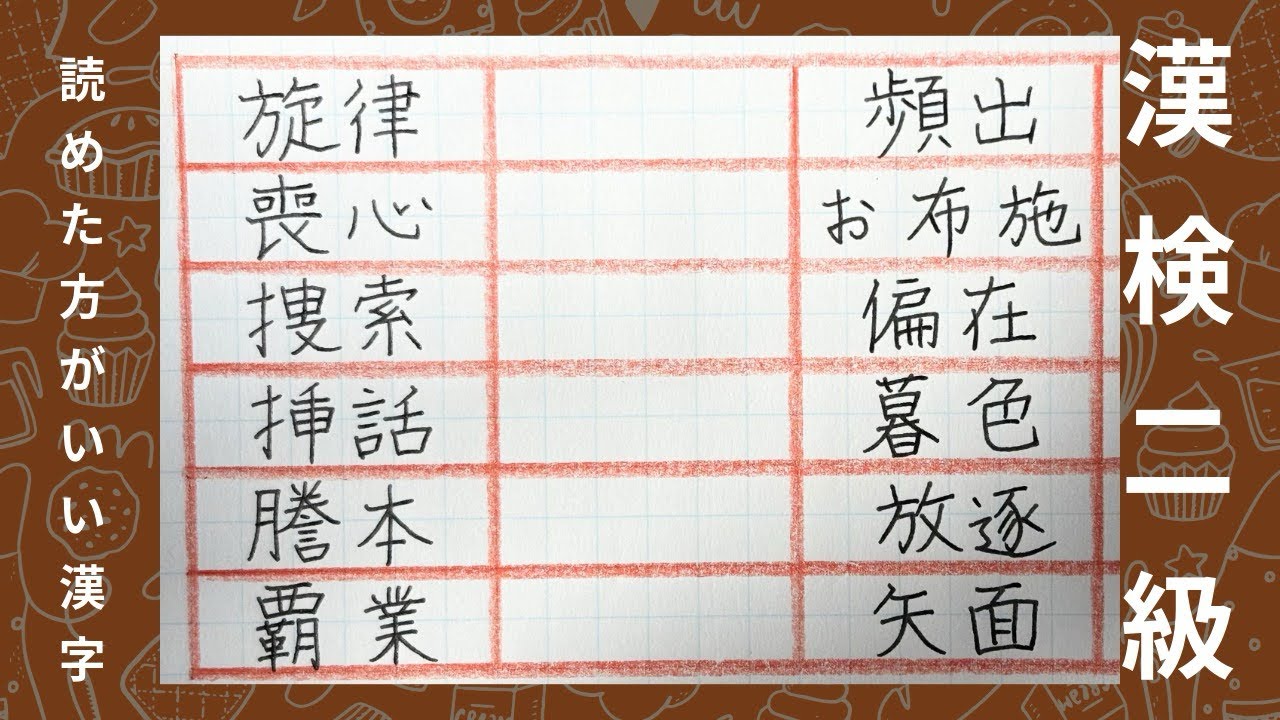 読めた方がいい漢字
旋律
頻出
喪心
お布施
捜索
偏在
挿話
暮色
謄本
放逐
覇業
矢面
漢検二級